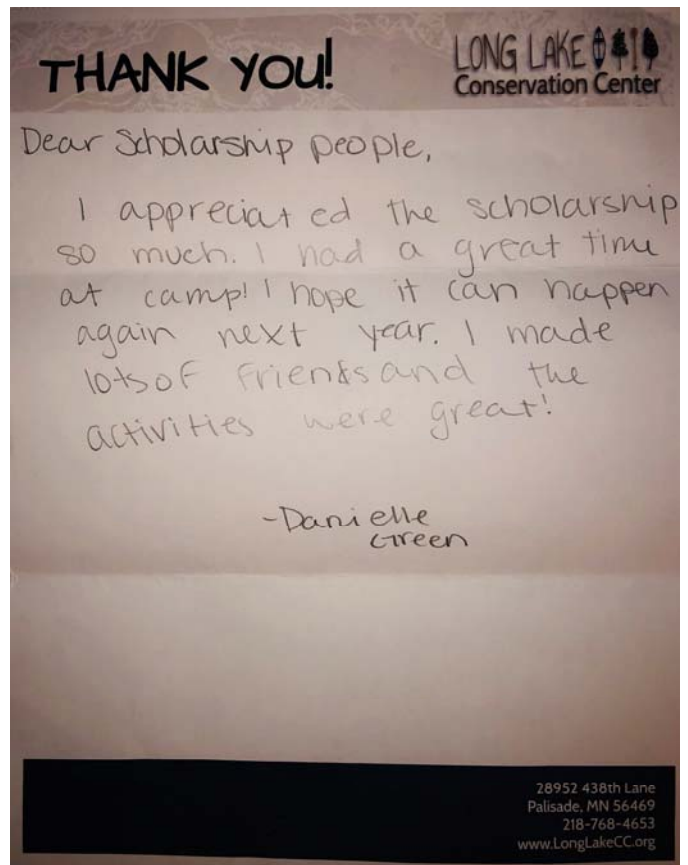 THANK YOU!
LONG LAKE
Conservation Center
Dear Scholarship people,
I appreciated the scholarship
so much. I had a great time
at camp! I hope it can happen
again next year. I made
lots of friends and the
activities were great!
-Danielle
Green
28952 438th Lane
Palisade, MN 56469
218-768-4653
www.LongLakeCC.org